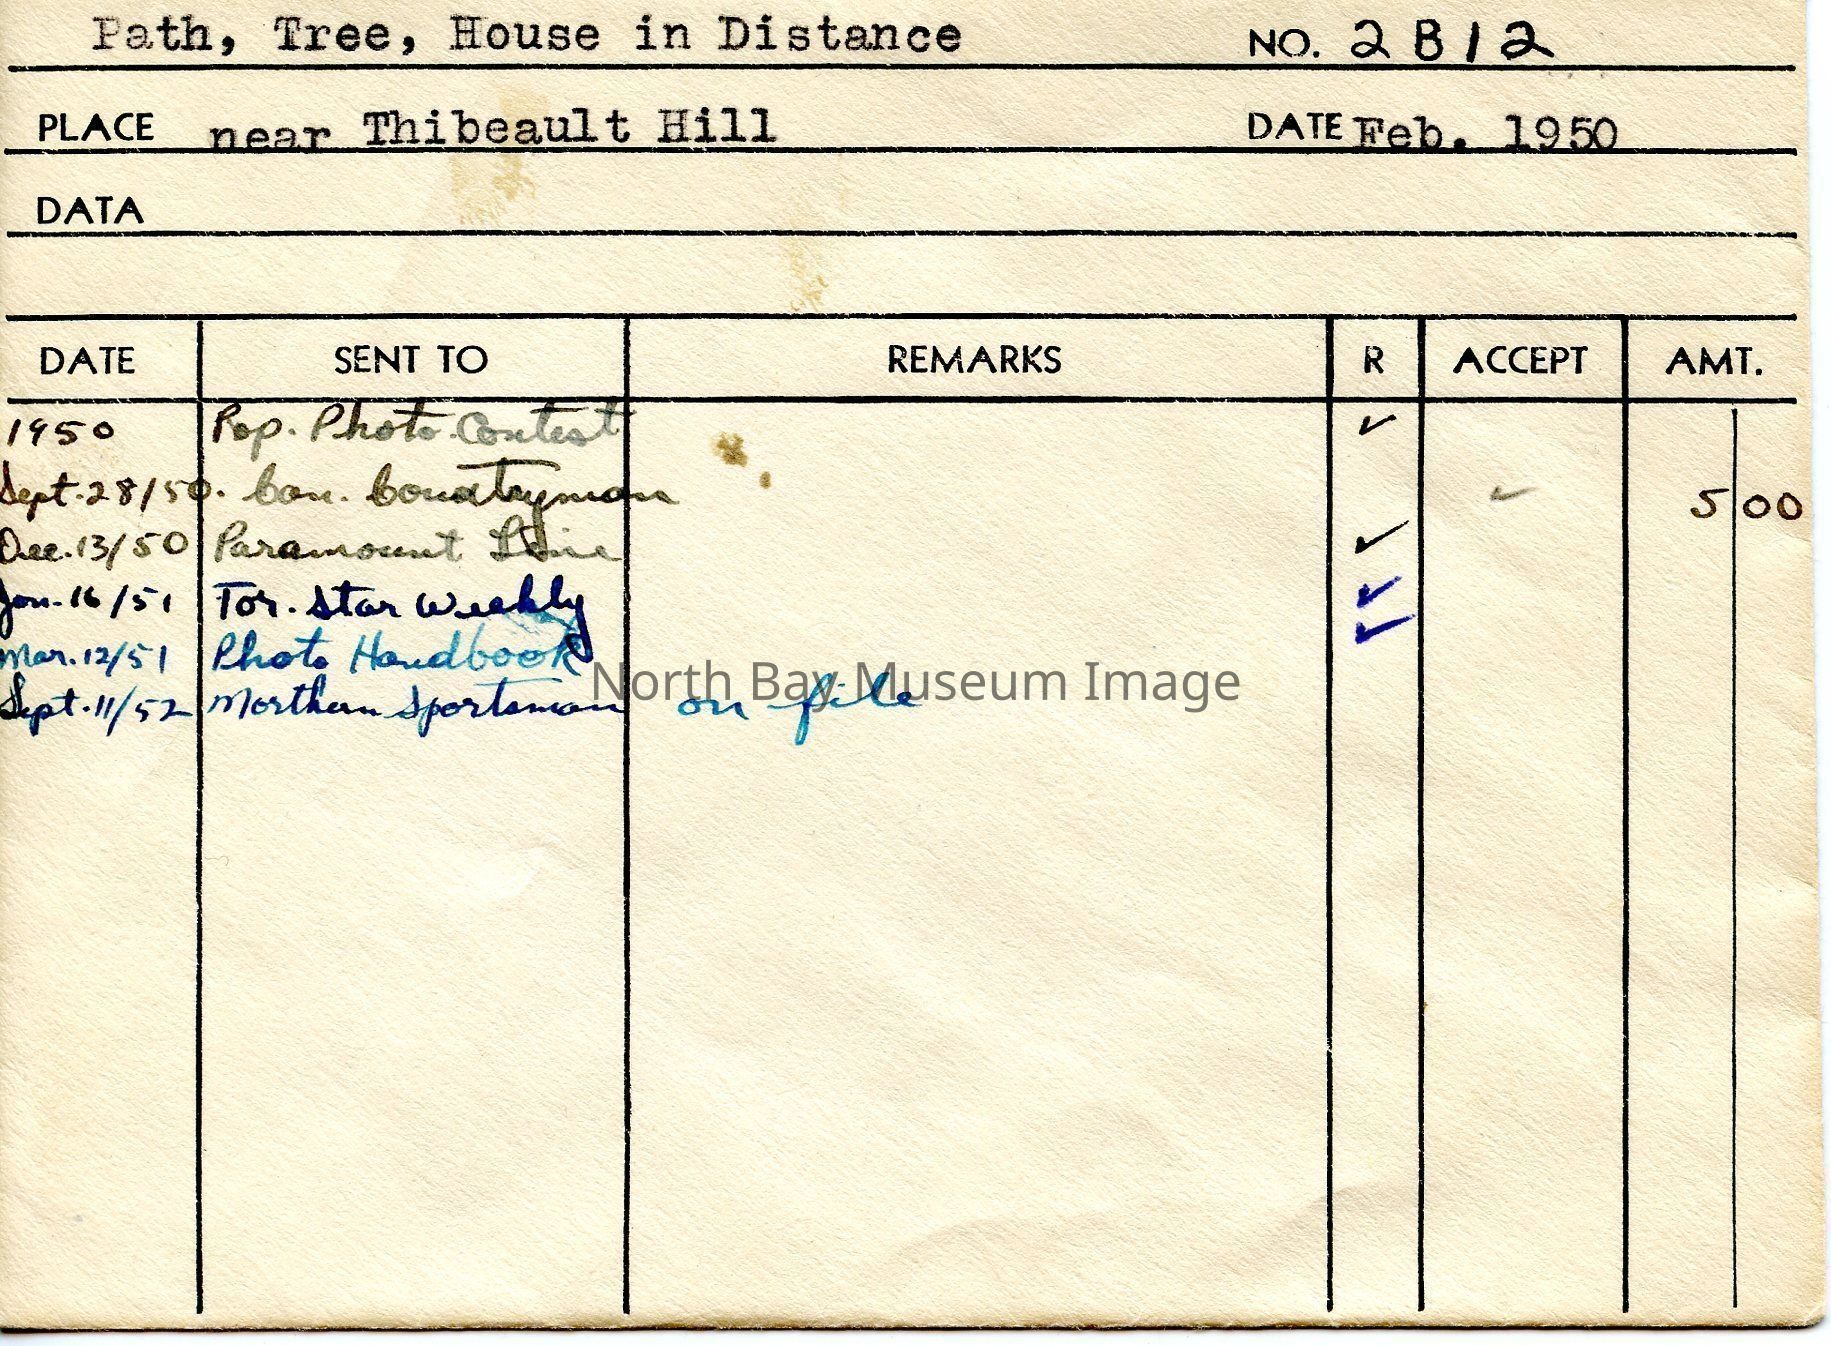 Path, Tree, House in Distance NO. 2B12
PLACE near Thibeault Hill DATE Feb. 1950
DATA
DATE SENT TO REMARKS R ACCEPT AMT.
1950 Pop. Photo. Contest ✓
Sept. 28/50. Can. Countryman ✓ 5 00
Dec. 13/50 Paramount Line ✓
Jan. 16/51 Tor. Star Weekly ✓
Mar. 12/51 Photo Handbook ✓
North Bay Museum Image
Sept. 11/52 Northern Sportsman on file